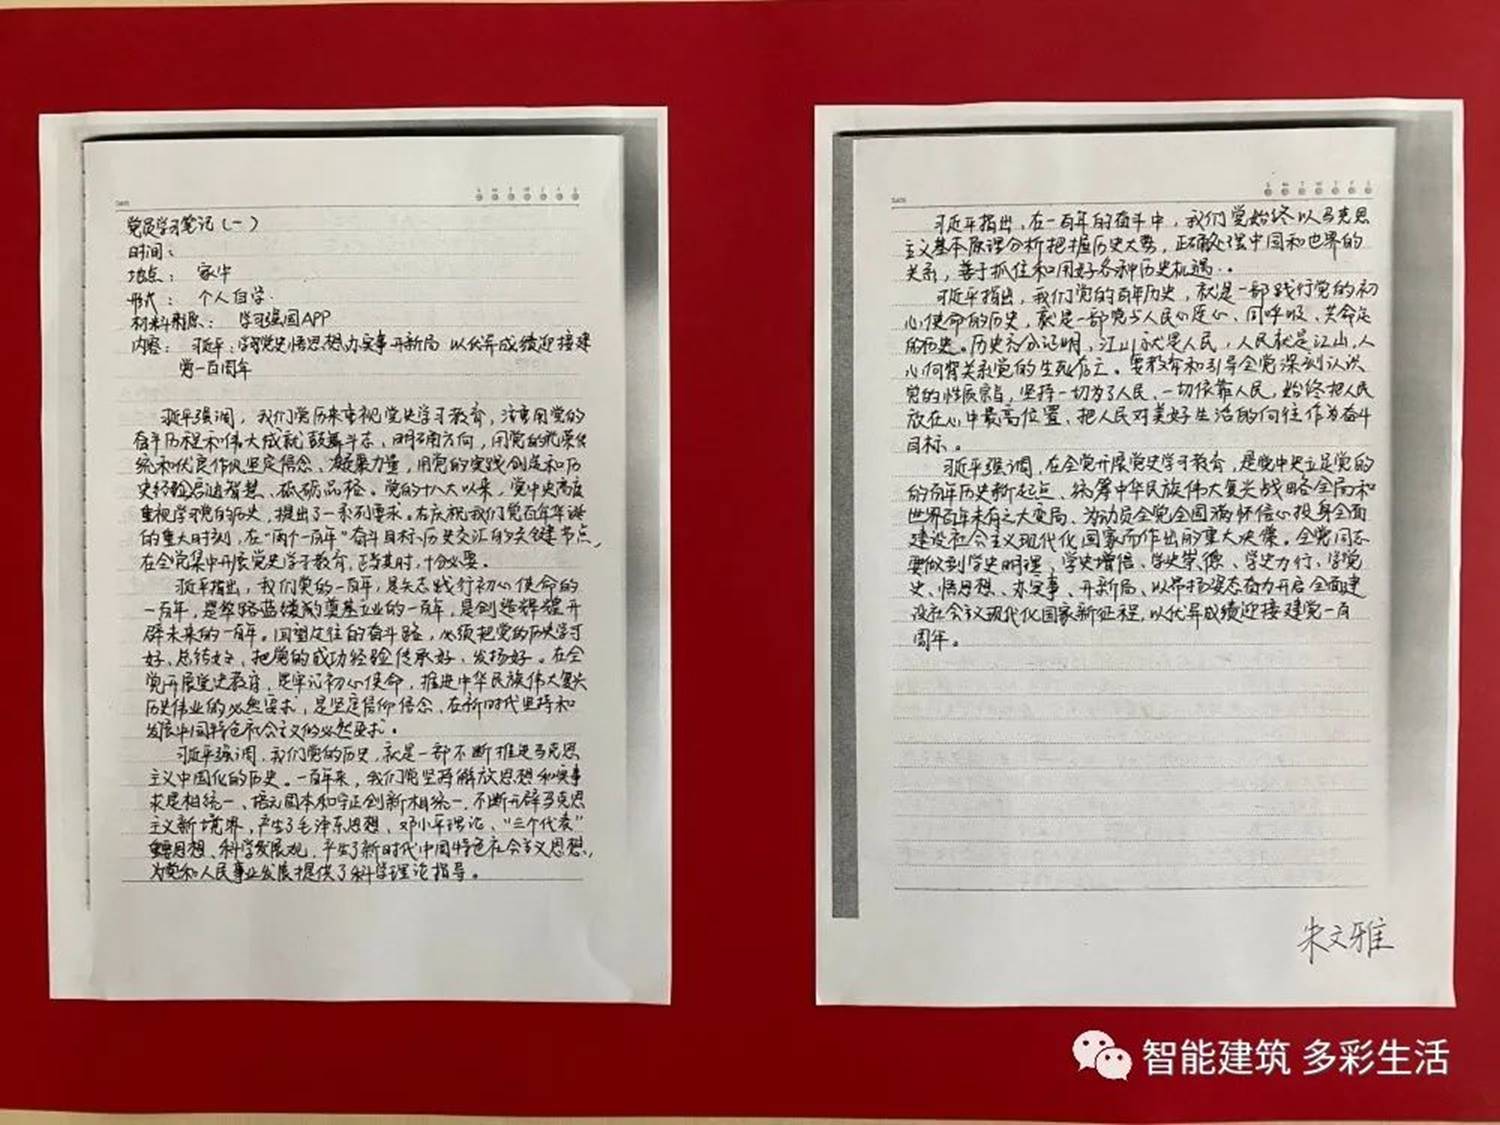 党员学习笔记(一)
时间：
地点： 家中
形式： 个人自学.
材料来源： 学习强国APP
内容： 习近平：学党史悟思想办实事开新局 以优异成绩迎接建
党一百周年
习近平强调，我们党历来重视党史学习教育，注重用党的
奋斗历程和伟大成就鼓舞斗志、明确方向，用党的光荣传
统和优良作风坚定信念、凝聚力量，用党的实践创造和历
史经验启迪智慧、砥砺品格。党的十八大以来，党中央高度
重视学习党的历史，提出了一系列要求。在庆祝我们党百年华诞
的重大时刻，在"两个一百年"奋斗目标历史交汇的关键节点，
在全党集中开展党史学习教育，正当其时，十分必要。
习近平指出，我们党的一百年，是矢志践行初心使命的
一百年，是筚路蓝缕奠基立业的一百年，是创造辉煌开
辟未来的一百年。回望过往的奋斗路，必须把党的历史学习
好、总结好，把党的成功经验传承好、发扬好。在全
党开展党史教育，是牢记初心使命，推进中华民族伟大复兴
历史伟业的必然要求，是坚定信仰信念、在新时代坚持和
发展中国特色社会主义的必然要求。
习近平强调，我们党的历史，就是一部不断推进马克思
主义中国化的历史。一百年来，我们党坚持解放思想和实事
求是相统一、培元固本和守正创新相统一，不断开辟马克思
主义新境界，产生了毛泽东思想、邓小平理论、"三个代表"
重要思想、科学发展观，产生了新时代中国特色社会主义思想，
为党和人民事业发展提供了科学理论指导。
习近平指出，在一百年的奋斗中，我们党始终以马克思
主义基本原理分析把握历史大势，正确处理中国和世界的
关系，善于抓住和用好各种历史机遇..
习近平指出，我们党的百年历史，就是一部践行党的初
心使命的历史，就是一部党与人民心连心、同呼吸、共命运
的历史。历史充分证明，江山就是人民，人民就是江山，人
心向背关系党的生死存亡。要教育和引导全党深刻认识
党的性质宗旨，坚持一切为了人民、一切依靠人民，始终把人民
放在心中最高位置、把人民对美好生活的向往作为奋斗
目标。
习近平强调，在全党开展党史学习教育，是党中央立足党的
的百年历史新起点、统筹中华民族伟大复兴战略全局和
世界百年未有之大变局、为动员全党全国满怀信心投身全面
建设社会主义现代化国家而作出的重大决策。全党同志
要做到学史明理，学史增信、学史崇德、学史力行，学党
史、悟思想、办实事、开新局、以昂扬姿态奋力开启全面建
设社会主义现代化国家新征程，以优异成绩迎接建党一百
周年。
朱文雅
智能建筑 多彩生活